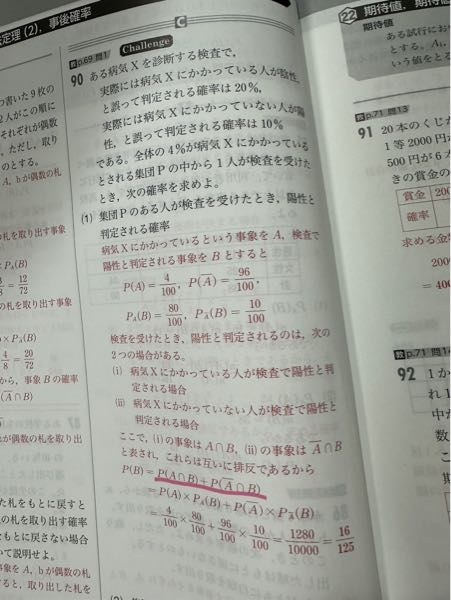 定理(2), 事後確率
C
教p.69 問1 Challenge
90 ある病気Xを診断する検査で,
実際には病気Xにかかっている人が陰性
と誤って判定される確率は20%,
実際には病気Xにかかっていない人が陽
性, と誤って判定される確率は10%
である。全体の4%が病気Xにかかっている
とされる集団Pの中から1人が検査を受けた
とき, 次の確率を求めよ。
(1) 集団Pのある人が検査を受けたとき, 陽性と
判定される確率
病気Xにかかっているという事象をA, 検査で
陽性と判定される事象をBとすると
P(A)=4/100, P(A̅)=96/100,
P_A(B)=80/100, P_A̅(B)=10/100
検査を受けたとき, 陽性と判定されるのは, 次の
2つの場合がある。
(i) 病気Xにかかっている人が検査で陽性と判
定される場合
(ii) 病気Xにかかっていない人が検査で陽性と
判定される場合
ここで, (i)の事象はA∩B, (ii)の事象はA̅∩B
と表され, これらは互いに排反であるから
P(B)=P(A∩B)+P(A̅∩B)
=P(A)×P_A(B)+P(A̅)×P_A̅(B)
=4/100×80/100+96/100×10/100=1280/10000=16/125
書いた9枚の
2人がこの順に
それぞれが偶数
ただし, 取り
のとする。
A, bが偶数の札
の札を取り出す事象
×P_A(B)
=12/72
の札を取り出す事象
)×P_A̅(B)
4/8=20/72
から, 事象Bの確率
(A̅∩B)
れが偶数の札を取り出
した札をもとに戻すと
てもとに戻さない場合
いて説明せよ。
A, bが偶数の札
すると, 取り出した札を
22 期待値, 期待
期待値
ある試行にお
とする。A₁,
いう値をとる
教p.71 問13
91 20本のくじか
1等2000円
500円が6本
きの賞金の期
賞金 200
確率
求める金
200
=400
教p.71 問14
92 1か
れ1
中た
数